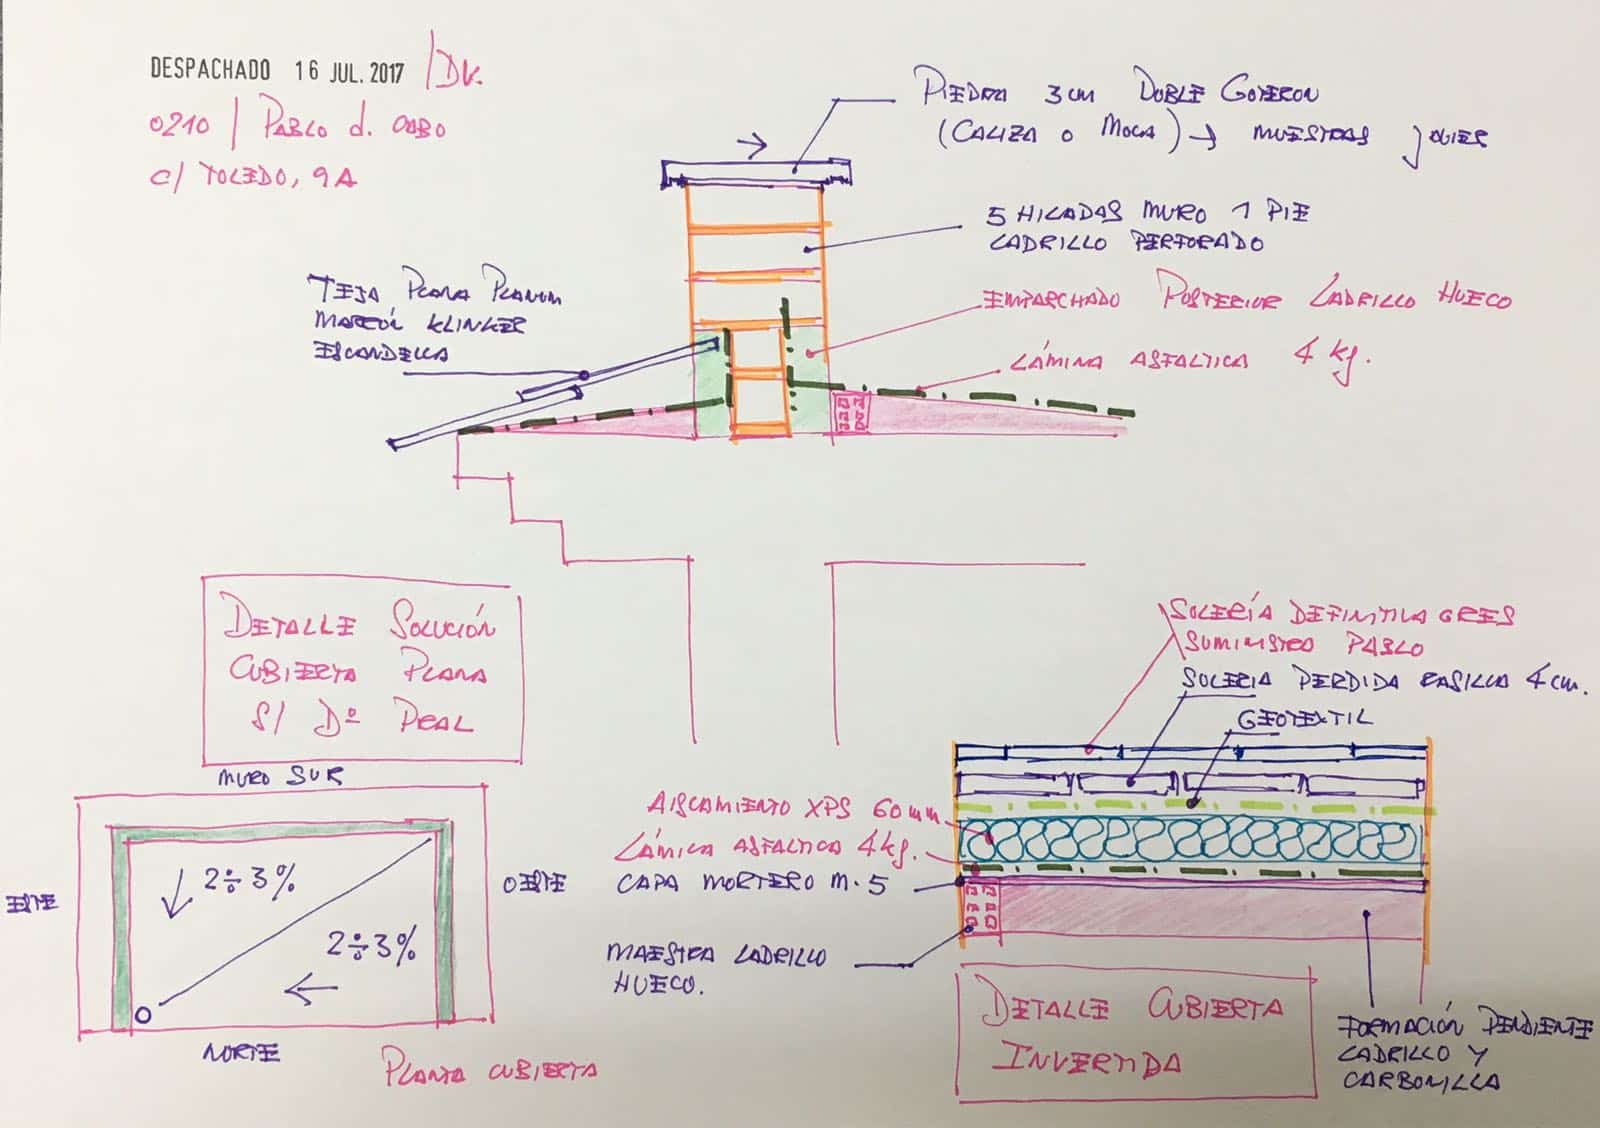 DESPACHADO 16 JUL. 2017 / DV.
0210 / PABLO d. COBO
C/ TOLEDO, 9A
PIEDRA 3 CM DOBLE GOTERON
(CALIZA O MOCA) → MUESTRAS JAVIER
5 HILADAS MURO 1 PIE
LADRILLO PERFORADO
EMPARCHADO POSTERIOR LADRILLO HUECO
LÁMINA ASFALTICA 4 Kg.
TEJA PLANA PLANUM
MARCÓN KLINKER
ESCANDELLA
DETALLE SOLUCIÓN
CUBIERTA PLANA
S/ Dº REAL
MURO SUR
ESTE
OESTE
2÷3%
2÷3%
NORTE
PLANTA CUBIERTA
SOLERÍA DEFINITIVA GRES
SUMINISTRO PABLO
SOLERIA PERDIDA RASILLA 4 cm.
GEOTEXTIL
AISLAMIENTO XPS 60 mm
LÁMINA ASFALTICA 4 Kg.
CAPA MORTERO M-5
MAESTRA LADRILLO
HUECO.
DETALLE CUBIERTA
INVERTIDA
FORMACIÓN PENDIENTE
LADRILLO Y
CARBONILLA